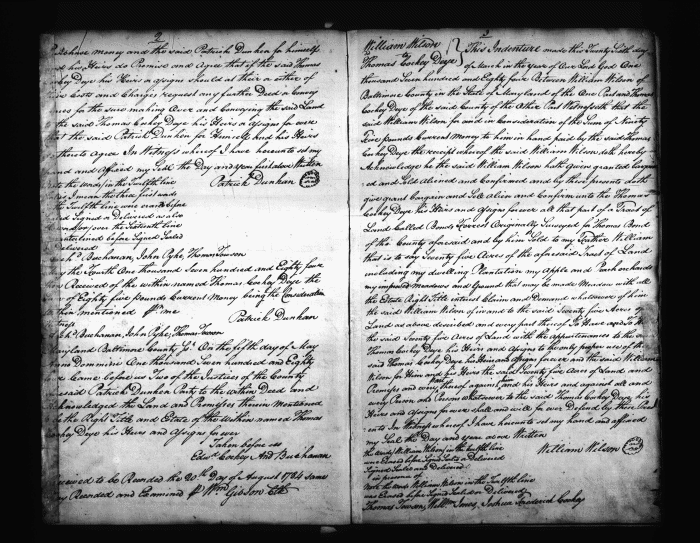 2
money and the said Patrick Dunhan for himself
his Heirs do Promise and Agree that if the said Thomas
Deye his Heirs or assigns should at their or other of
Costs and Charges request any further Deed or Convey
for the sure making Over and Conveying the said Land
the said Thomas Cockey Deye his Heirs or Assigns for ever
that the said Patrick Dunhan for Himself and his Heirs
thereto Agree In Witness whereof I have hereunto set my
hand and Affixed my Seal the Day and year first above Written
the Words in the Twelfth line
I mean the third first and
the Twelfth line were
Signed or Delivered as also
over the Sixteenth line
enterlined before Signed Sealed
Delivered
Patrick Dunhan
Buchanan, John Pyke, Thomas Towson
the Fourth One thousand Seven hundred and Eighty four
Received of the within named Thomas Cockey Deye the
of Eighty five pounds Current Money being the Consideration
within mentioned Pr. me
Patrick Dunhan
Buchanan, John Pyke, Thomas Towson
Maryland Baltimore County Sc. On the fifth day of May
Dommini One thousand Seven hundred and Eighty
Came before us Two of the Justices of the County
said Patrick Dunhan Party to the within Deed and
Acknowledged the Land and Premises therein Mentioned
the Right Title and Estate of the within named Thomas
Cockey Deye his Heirs and Assigns for ever
Taken before us
Edwd. Cockey And Buchanan
Received to be Recorded the 20th Day of August 1784 same
Day Recorded and Examined Pr Wm Gibson Clk
3
William Wilson
Thomas Cockey Deye
This Indenture made this Twenty Sixth day
of March in the Year of Our Lord God One
thousand Seven hundred and Eighty four Between William Wilson of
Baltimore County in the State of Maryland of the One Part and Thomas
Cockey Deye of the said County of the Other Part Witnesseth that the
said William Wilson for and in Consideration of the Sum of Ninety
Five pounds Current Money to him in hand paid by the said Thomas
Cockey Deye the receipt whereof the said William Wilson doth hereby
Acknowledge he the said William Wilson hath given granted bargain
ed and Sold Aliened and Confirmed and by these presents doth
give grant bargain and Sell alien and Confirm unto the Thomas
Cockey Deye his Heirs and Assigns forever all that part of a Tract of
Land Called Bonds Forrest Originally Surveyed for Thomas Bond
of the County aforesaid and by him Sold to my Father William
that is to say Seventy five Acres of the aforesaid Tract of Land
including my dwelling Plantation my Apple and Peach orchards
my improved Meadows and Ground that may be made Meadow with all
the Estate Right Title interest Claim and Demand whatsoever of him
the said William Wilson of in and to the said Seventy five Acres of
Land as above described and every part thereof To Have and To Hold
the said Seventy five Acres of Land with the Appurtenances to the said
Thomas Cockey Deye his Heirs and Assigns
said Thomas Cockey Deye his Heirs and Assigns forever and the said William
Wilson for Him and his Heirs the said Seventy five Acres of Land and
Premises and every part thereof against him and his Heirs and against all and
every Person and Persons whatsoever to the said Thomas Cockey Deye his
Heirs and Assigns for ever shall and will for ever Defend by these Pres
ents In Witness whereof I have hereunto set my hand and affixed
my Seal the Day and Year above Written
William Wilson
the Words William Wilson in the twelfth line
were Erased before Sign'd Seal'd or Delivered
Signed Sealed and Delivered
in presence of
Note the Words William Wilson in the Twelfth line
was Erased before Signed Sealed or Delivered
Thomas Towson, Jones, Joshua Frederick Cockey